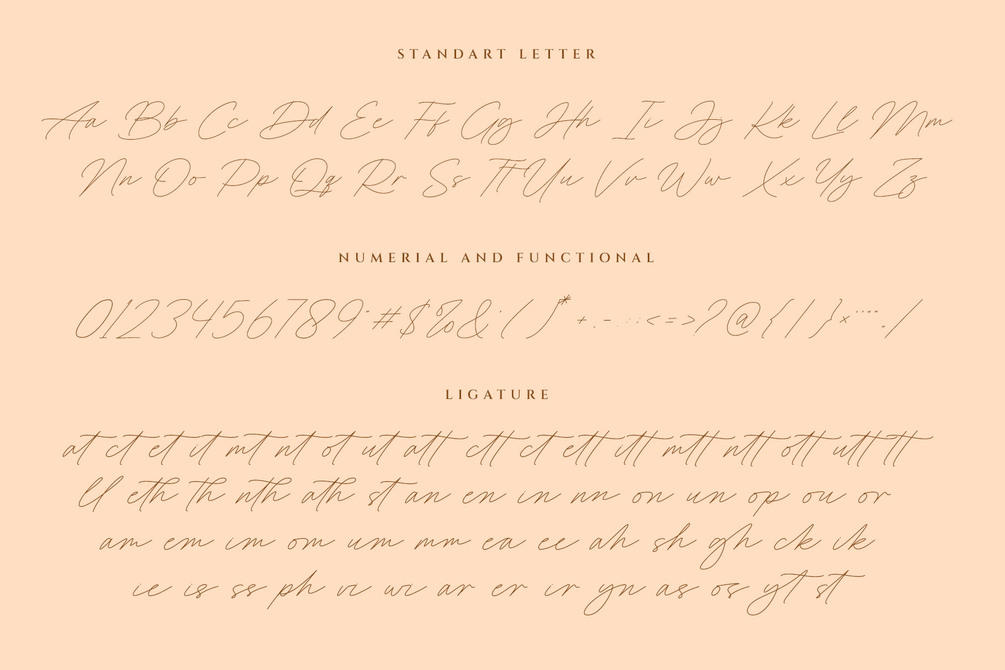 STANDART LETTER
Aa Bb Cc Dd Ee Ff Gg Hh Ii Jj Kk Ll Mm
Nn Oo Pp Qq Rr Ss Tt Uu Vv Ww Xx Yy Zz
NUMERIAL AND FUNCTIONAL
0123456789 # $ % & ( ) * + , - < = > ? @ { | } × /
LIGATURE
at ct et it mt nt ot ut att ctt ct ett itt mtt ntt ott utt tt
ll eth th nth ath st an en in nn on un op ou or
am em im om um mm ea ee ah sh gh ck ik
ie is ss ph vi wi ar er ir yn as os yt st